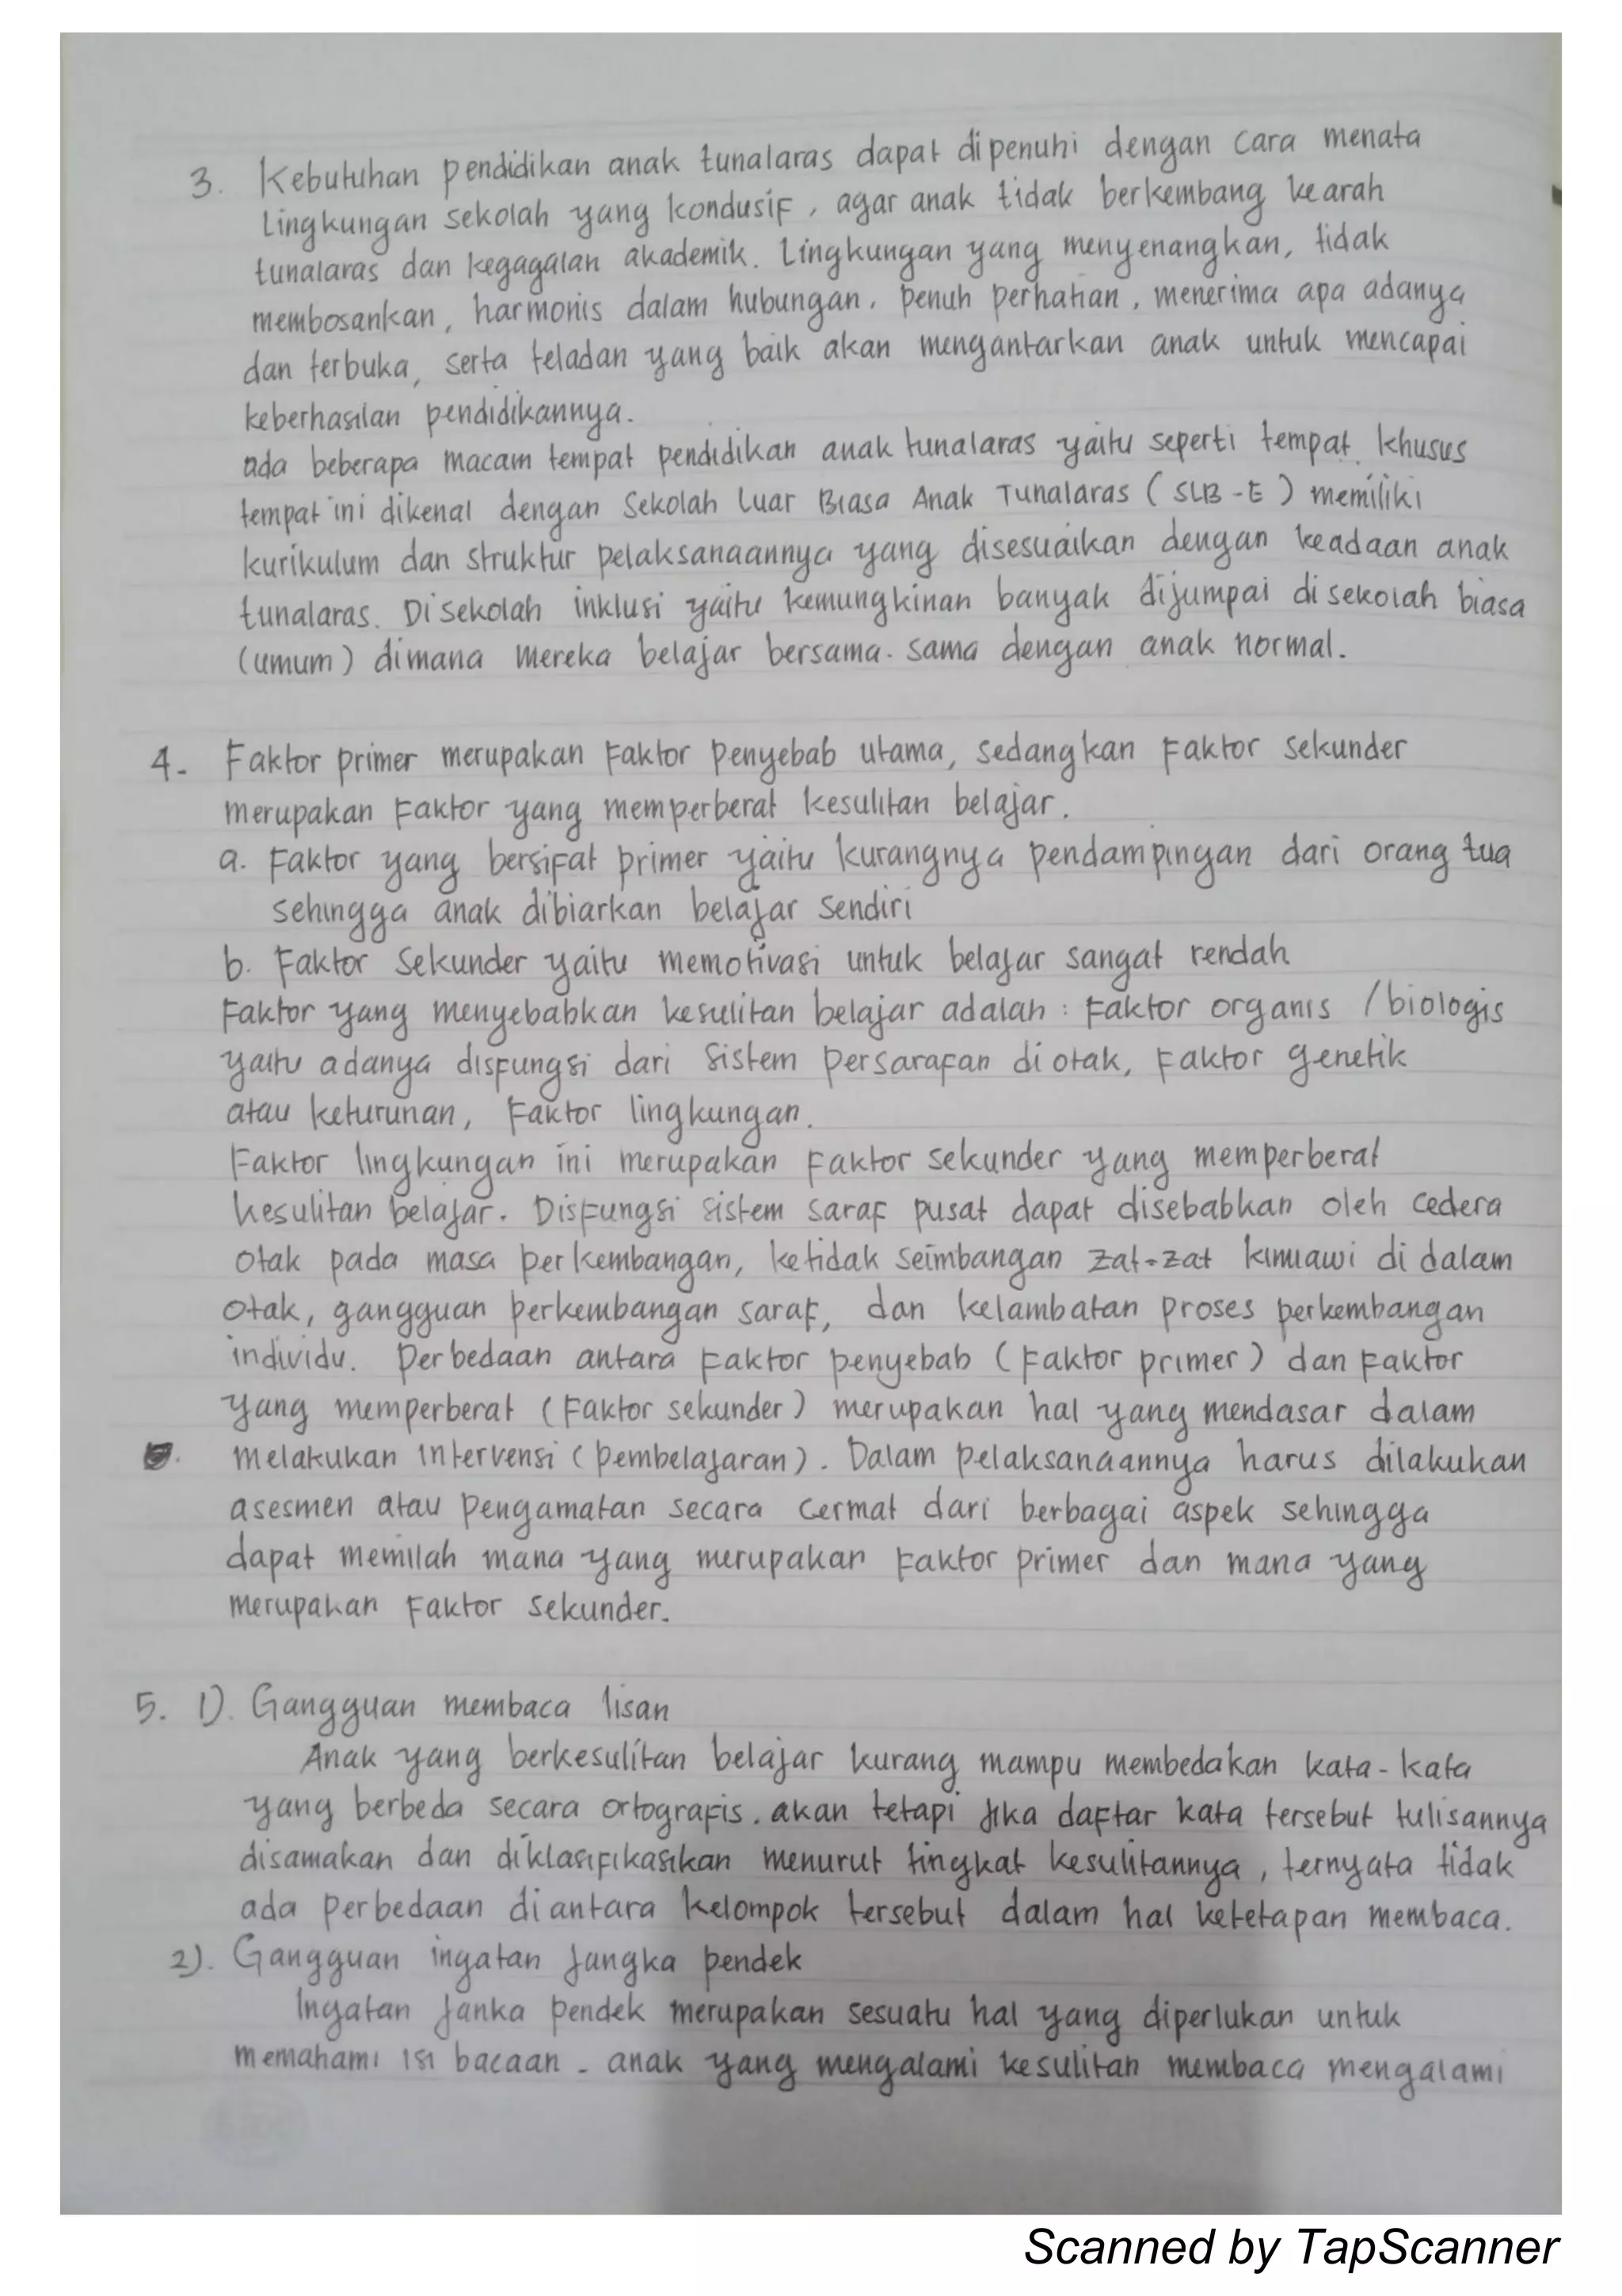 3. Kebutuhan pendidikan anak tunalaras dapat dipenuhi dengan cara menata
Lingkungan sekolah yang kondusif, agar anak tidak berkembang kearah
tunalaras dan kegagalan akademik. Lingkungan yang menyenangkan, tidak
membosankan, harmonis dalam hubungan, penuh perhatian, menerima apa adanya
dan terbuka, serta teladan yang baik akan mengantarkan anak untuk mencapai
keberhasilan pendidikannya.
ada beberapa macam tempat pendidikan anak tunalaras yaitu seperti tempat khusus
tempat ini dikenal dengan Sekolah Luar Biasa Anak Tunalaras (SLB-E) memiliki
kurikulum dan struktur pelaksanaannya yang disesuaikan dengan keadaan anak
tunalaras. Disekolah inklusi yaitu kemungkinan banyak dijumpai disekolah biasa
(umum) dimana mereka belajar bersama-sama dengan anak normal.
4. Faktor primer merupakan Faktor penyebab utama, sedangkan Faktor sekunder
merupakan Faktor yang memperberat kesulitan belajar.
a. Faktor yang bersifat primer yaitu kurangnya pendampingan dari orang tua
sehingga anak dibiarkan belajar sendiri
b. Faktor Sekunder yaitu memotivasi untuk belajar sangat rendah
Faktor yang menyebabkan kesulitan belajar adalah : Faktor organis /biologis
yaitu adanya disfungsi dari sistem persarafan di otak, Faktor genetik
atau keturunan, Faktor lingkungan.
Faktor lingkungan ini merupakan Faktor sekunder yang memperberat
kesulitan belajar. Disfungsi sistem saraf pusat dapat disebabkan oleh cedera
otak pada masa perkembangan, ketidak seimbangan zat-zat kimiawi di dalam
otak, gangguan perkembangan saraf, dan kelambatan proses perkembangan
individu. Perbedaan antara Faktor penyebab (Faktor primer) dan Faktor
yang memperberat (Faktor sekunder) merupakan hal yang mendasar dalam
melakukan intervensi (pembelajaran). Dalam pelaksanaannya harus dilakukan
asesmen atau pengamatan secara cermat dari berbagai aspek sehingga
dapat memilah mana yang merupakan Faktor primer dan mana yang
merupakan Faktor sekunder.
5. 1). Gangguan membaca lisan
Anak yang berkesulitan belajar kurang mampu membedakan kata-kata
yang berbeda secara ortografis. akan tetapi jika daftar kata tersebut tulisannya
disamakan dan diklasifikasikan menurut tingkat kesulitannya, ternyata tidak
ada perbedaan diantara kelompok tersebut dalam hal ketetapan membaca.
2). Gangguan ingatan jangka pendek
Ingatan janka pendek merupakan sesuatu hal yang diperlukan untuk
memahami isi bacaan. anak yang mengalami kesulitan membaca mengalami
Scanned by TapScanner